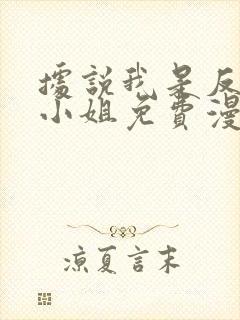 據說我是反
小姐免費漫
涼夏言末